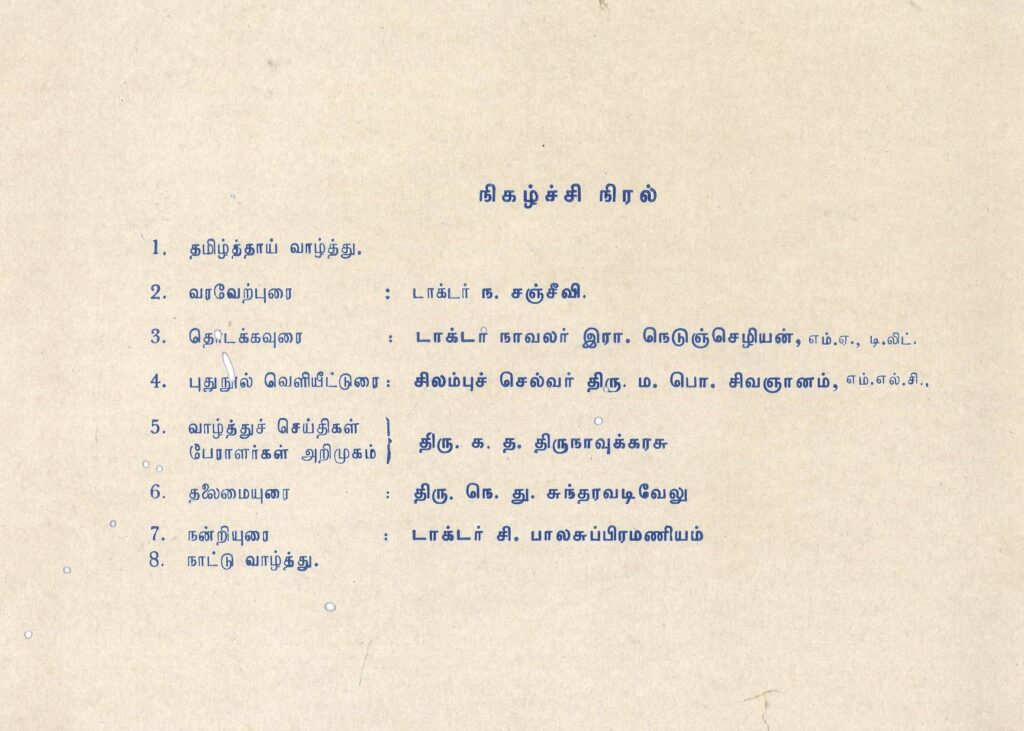 நிகழ்ச்சி நிரல்
1. தமிழ்த்தாய் வாழ்த்து.
2. வரவேற்புரை : டாக்டர் ந. சஞ்சீவி.
3. தொடக்கவுரை : டாக்டர் நாவலர் இரா. நெடுஞ்செழியன், எம்.ஏ., டி.லிட்.
4. புதுநூல் வெளியீட்டுரை : சிலம்புச் செல்வர் திரு. ம. பொ. சிவஞானம், எம்.எல்.சி.,
5. வாழ்த்துச் செய்திகள்
பேராளர்கள் அறிமுகம் } திரு. க. த. திருநாவுக்கரசு
6. தலைமையுரை : திரு. நெ. து. சுந்தரவடிவேலு
7. நன்றியுரை : டாக்டர் சி. பாலசுப்பிரமணியம்
8. நாட்டு வாழ்த்து.